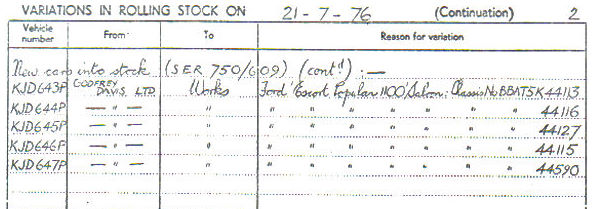 VARIATIONS IN ROLLING STOCK ON 21-7-76 (Continuation) 2
Vehicle number From To Reason for variation
New cars into stock (SER 750/609) (contd) :—
KJD643P GODFREY DAVIS LTD Works Ford 'Escort Popular 1100' Saloon: Chassis No BBATSK44113
KJD644P — " — " " " " " " " " 44116
KJD645P — " — " " " " " " " " 44127
KJD646P — " — " " " " " " " " 44115
KJD647P — " — " " " " " " " " 44590